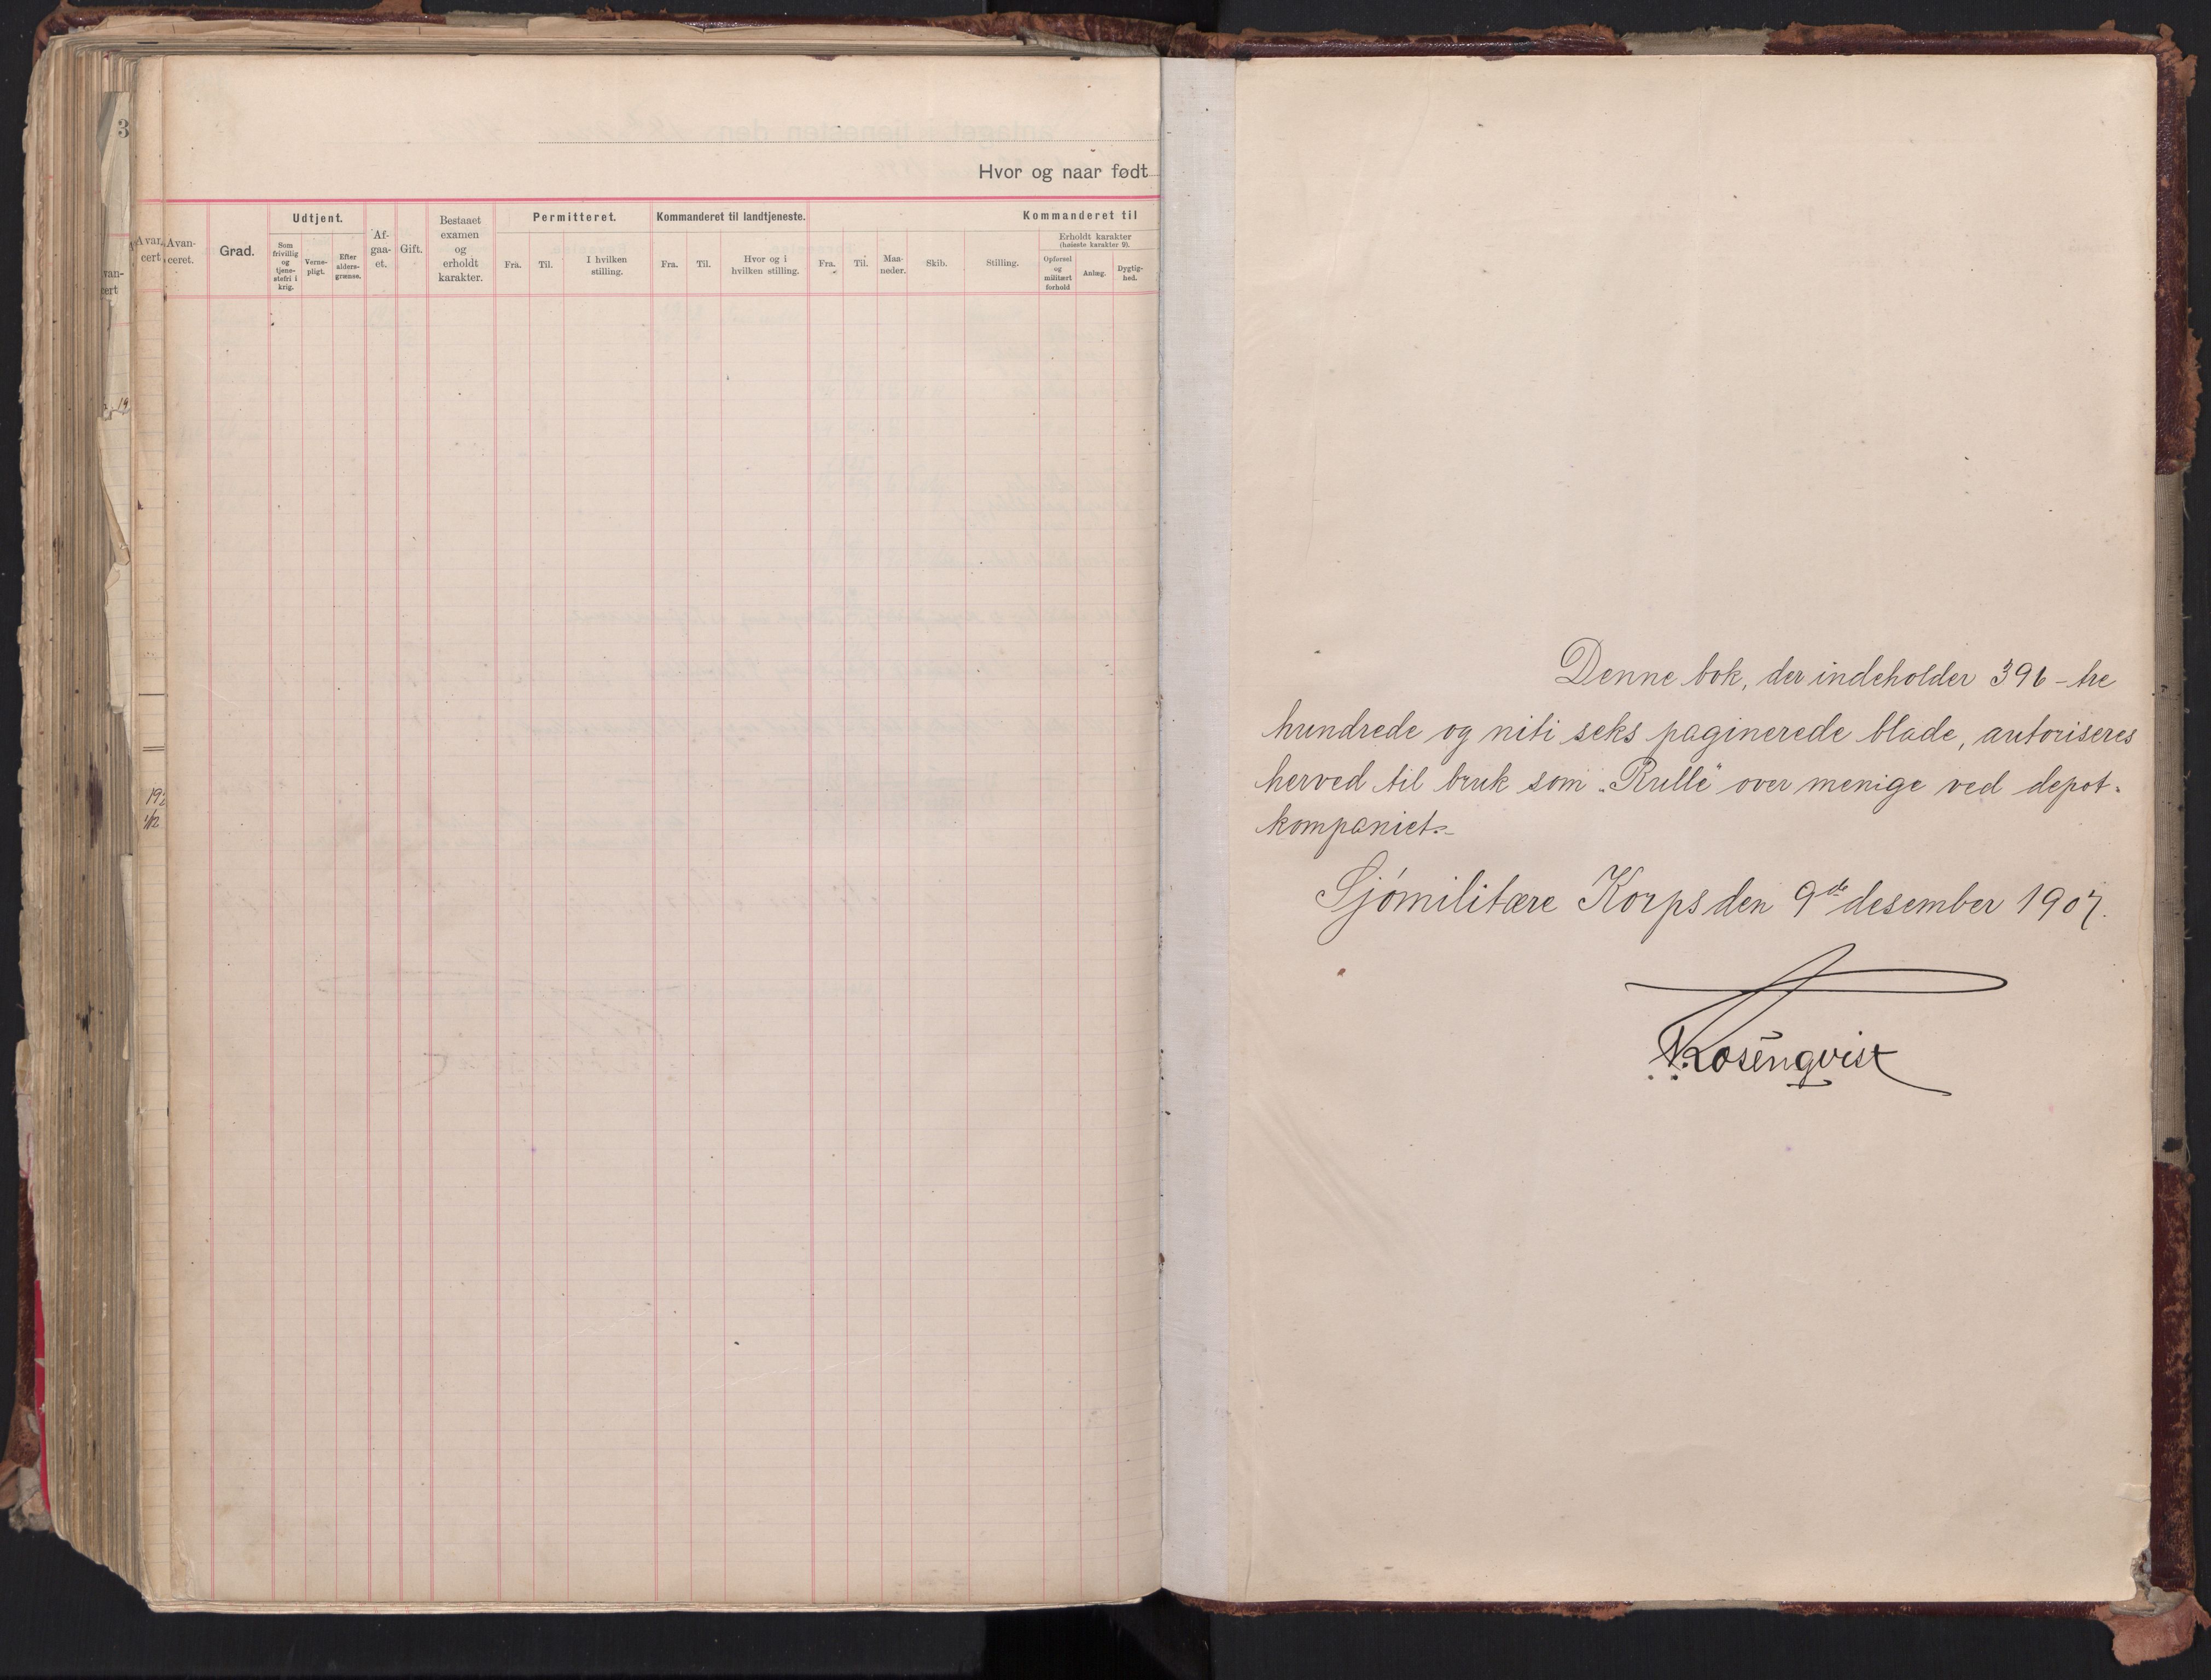 3
Hvor og naar født
Avan-
ceret.
Grad.
Udtjent.
Som
frivillig
og
tjene-
stefri i
krig.
Verne-
pligt.
Efter
alders-
grænse.
Af-
gaa-
et.
Gift.
Bestaaet
examen
og
erholdt
karakter.
Permitteret.
Fra.
Til.
I hvilken
stilling.
Kommanderet til landtjeneste.
Fra.
Til.
Hvor og i
hvilken stilling.
Kommanderet til
Fra.
Til.
Maa-
neder.
Skib.
Stilling.
Erholdt karakter
(høieste karakter 9).
Opførsel
og
militært
forhold
Anlæg.
Dygtig-
hed.
Denne bok, der indeholder 396 - tre
hundrede og niti seks paginerede blade, autoriseres
herved til bruk som „Rulle" over menige ved depot-
kompaniet.-
Sjómilitære Korps den 9de desember 1907.
Rosenqvist